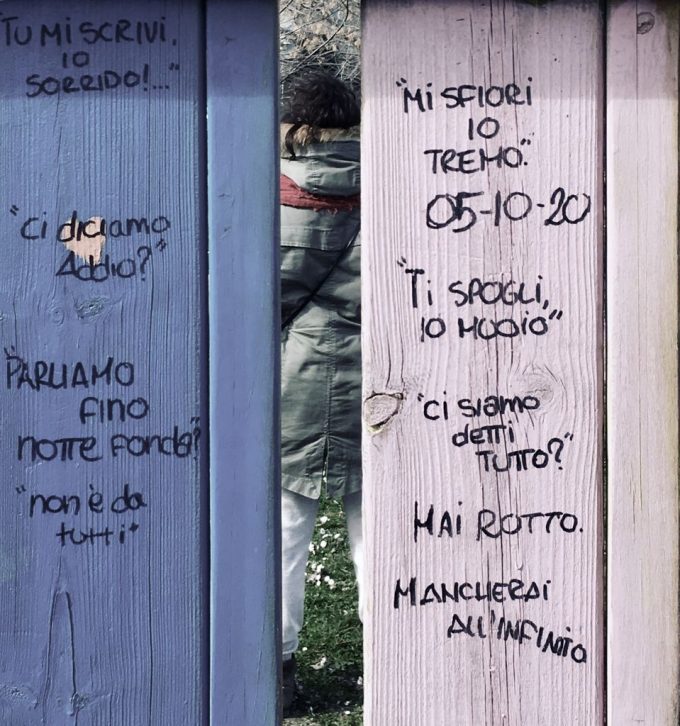 "TU MI SCRIVI,
IO
SORRIDO!..."
"Ci diciamo
Addio?"
"PARLIAMO
FiNO
NOTTE FONDA?
"non è da
tutti"
"Mi SFIORI
IO
TREMO."
05-10-20
"Ti SPOGLI,
IO MUOIO"
"Ci SiAMO
detti
TUTTO?"
MAI ROTTO.
MANCHERAI
ALL'INFINITO